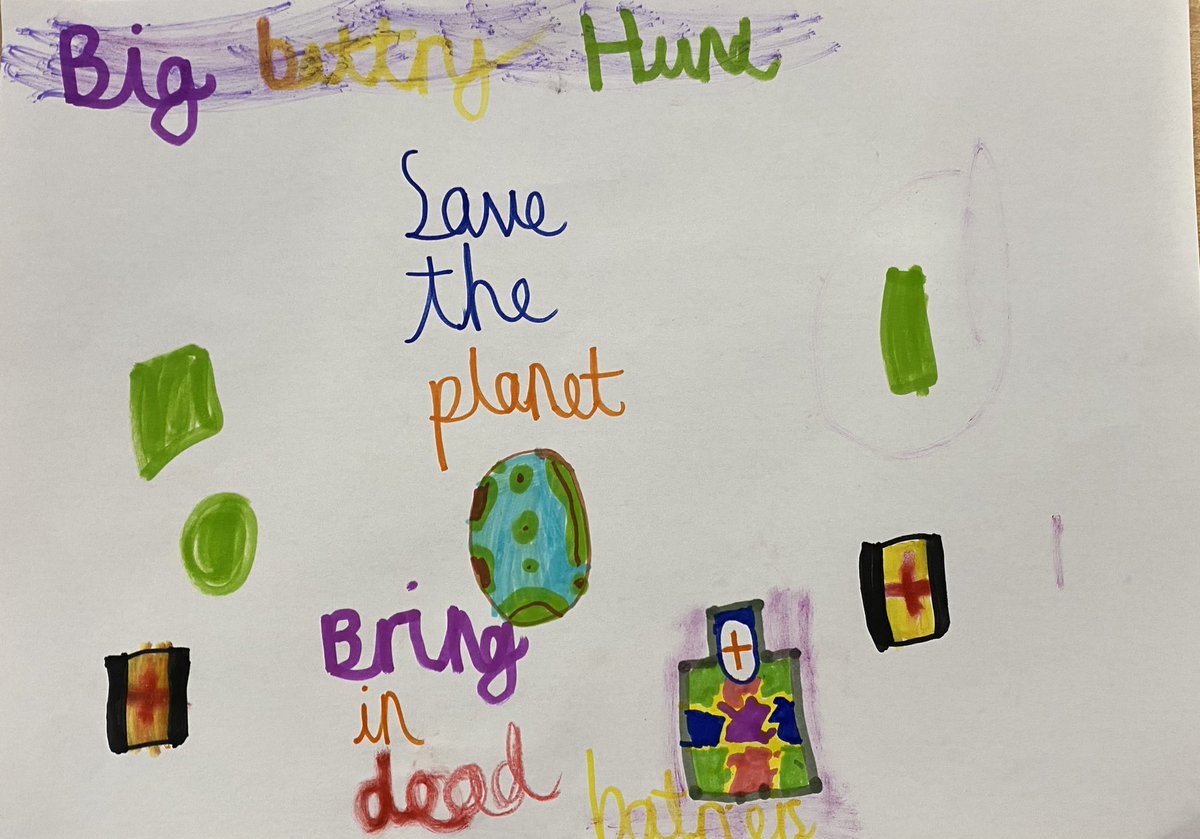 Big battry Hunt
Save
the
planet
Bring
in
dead